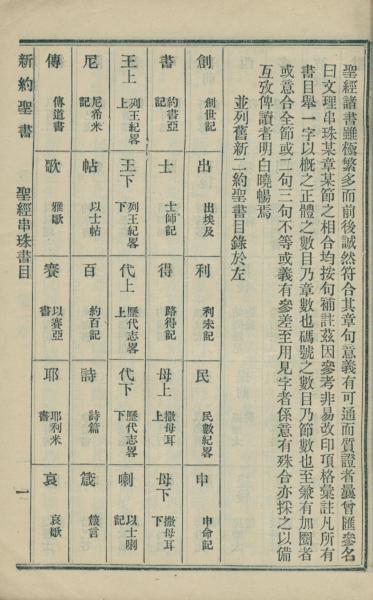 聖經諸書雖極繁多而前後誠然符合其章句意義有可通而質證者曩曾匯參名
曰文理串珠某章某節之相合均按句補註茲因參考非易改印頂格彙註凡所有
書目舉一字以概之正體之數目乃章數也碼號之數目乃節數也至兼有加圈者
或意合全節或二句三句不等或義有參差至用見字者係意有殊合亦採之以備
互攷俾讀者明白曉暢焉
並列舊新二約聖書目錄於左
創 創世記
出 出埃及
利 利未記
民 民數紀畧
申 申命記
書 約書亞記
士 士師記
得 路得記
母上 撒母耳上
母下 撒母耳下
王上 列王紀畧上
王下 列王紀畧下
代上 歷代志畧上
代下 歷代志畧下
喇 以士喇記
尼 尼希米記
帖 以士帖
百 約百記
詩 詩篇
箴 箴言
傳 傳道書
歌 雅歌
賽 以賽亞書
耶 耶利米書
哀 哀歌
新約聖書 聖經串珠書目 一